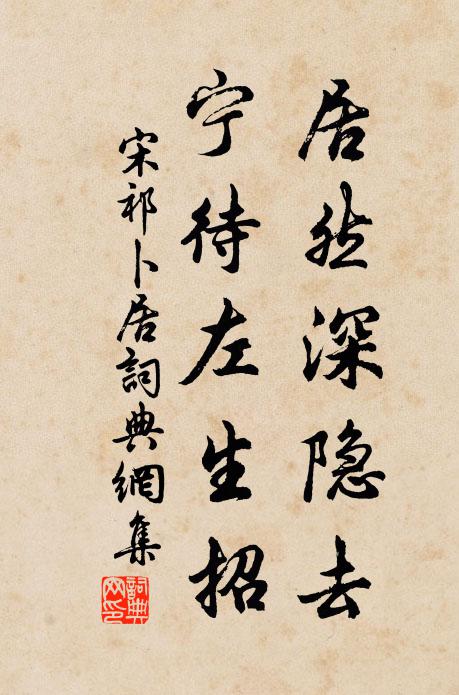 居然深隐去
宁待左生招
宋祁卜居詞典網集
詞典网印